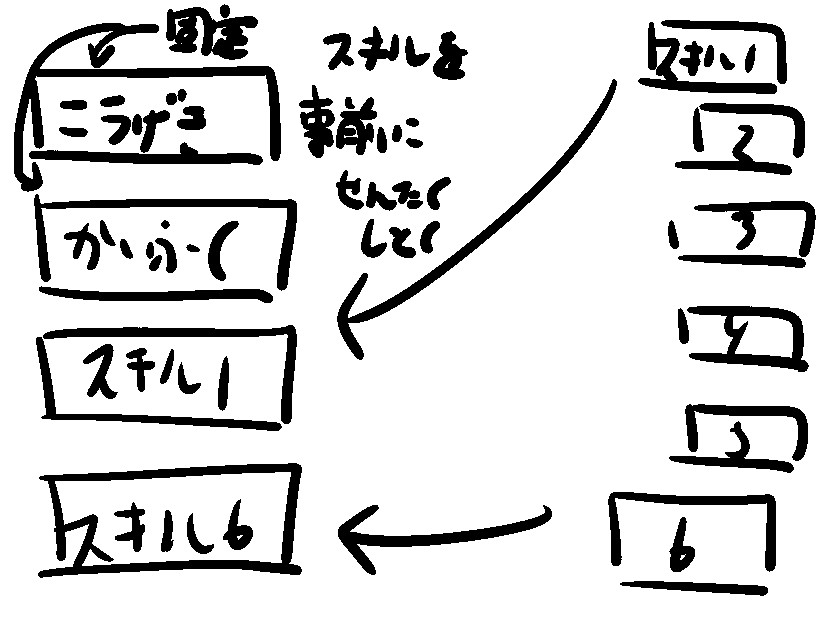 固定
こうげき
かいふく
スキル1
スキル6
スキルを
事前に
せんたく
しとく
スキル1
2
3
4
5
6